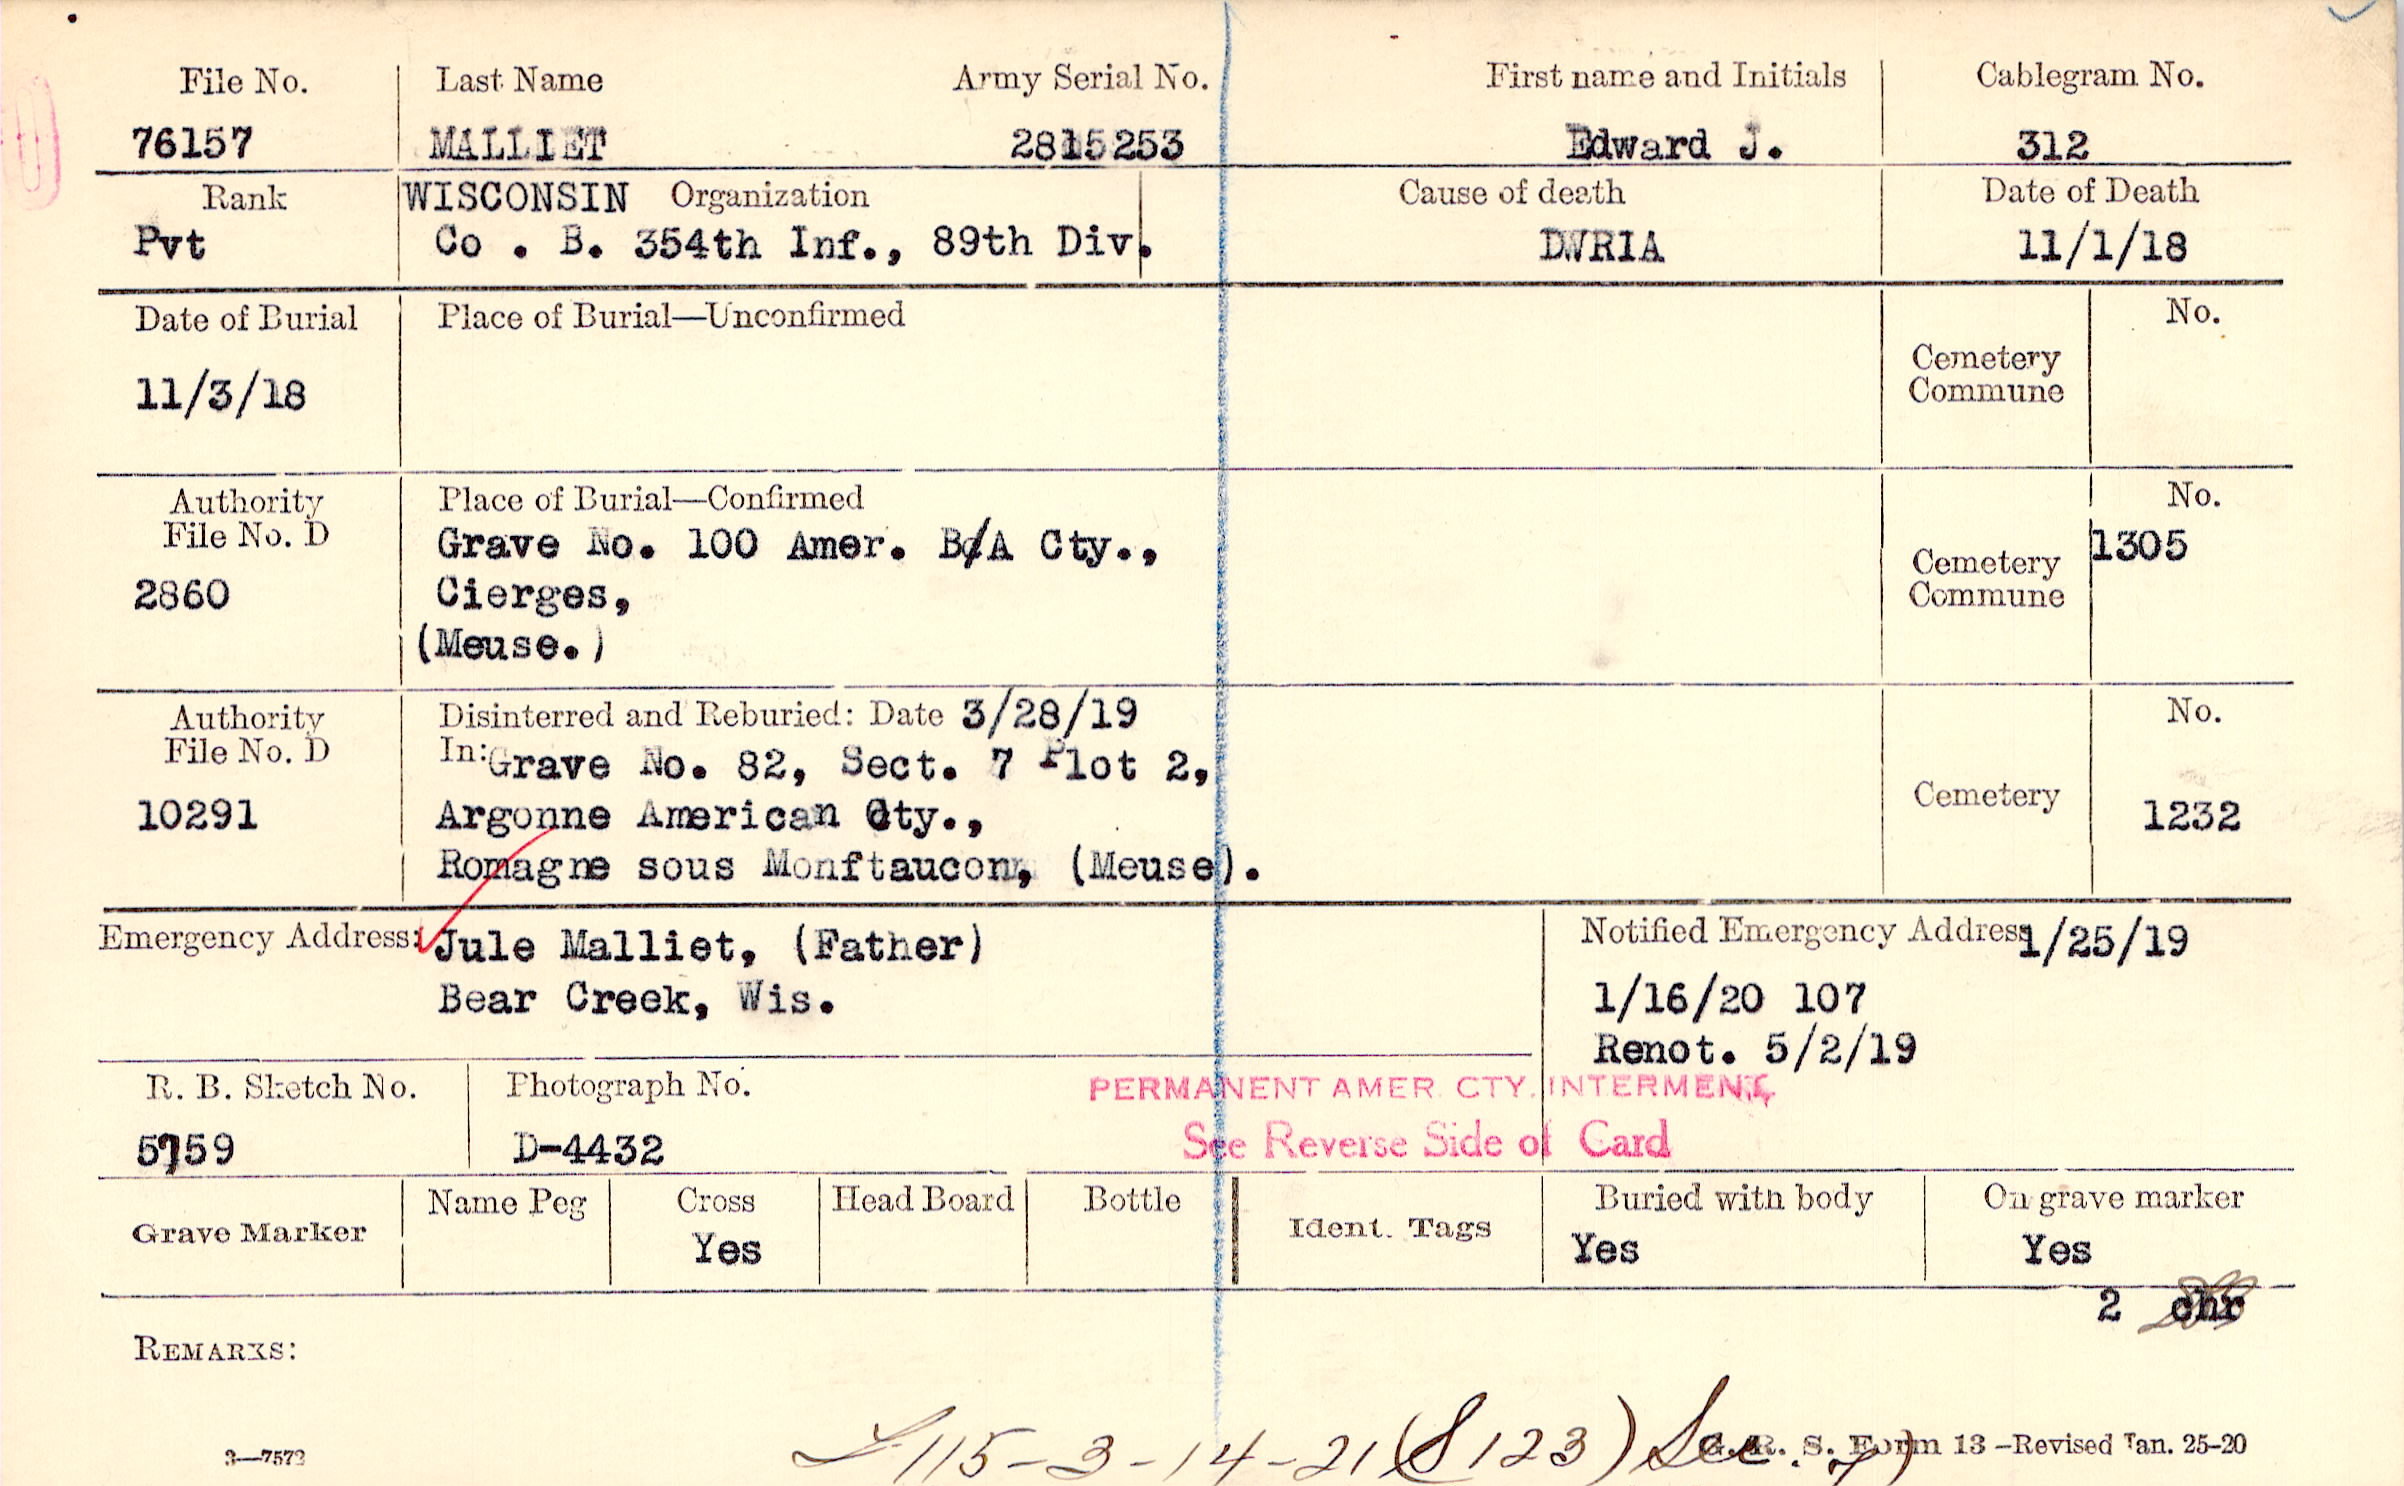 File No. Last Name Army Serial No. First name and Initials Cablegram No.
76157 MALLIET 2815253 Edward J. 312
Rank WISCONSIN Organization Cause of death Date of Death
Pvt Co . B. 354th Inf., 89th Div. DWRIA 11/1/18
Date of Burial Place of Burial—Unconfirmed No.
11/3/18
Cemetery
Commune
Authority Place of Burial—Confirmed No.
File No. D Grave No. 100 Amer. B/A Cty., 1305
2860 Cierges, Cemetery
Commune
(Meuse.)
Authority Disinterred and Reburied: Date 3/28/19 No.
File No. D In: Grave No. 82, Sect. 7 Plot 2,
10291 Argonne American Cty., Cemetery 1232
Romagne sous Monftaucon, (Meuse).
Emergency Address: Jule Malliet, (Father) Notified Emergency Address 1/25/19
Bear Creek, Wis. 1/16/20 107
Renot. 5/2/19
R. B. Sketch No. Photograph No. PERMANENT AMER. CTY. INTERMENT,
5759 D-4432 See Reverse Side of Card
Grave Marker Name Peg Cross Head Board Bottle Ident. Tags Buried with body On grave marker
Yes Yes Yes
2 chr
REMARKS:
115-3-14-21 (S123)
3—7573 G. R. S. Form 13—Revised Jan. 25-20